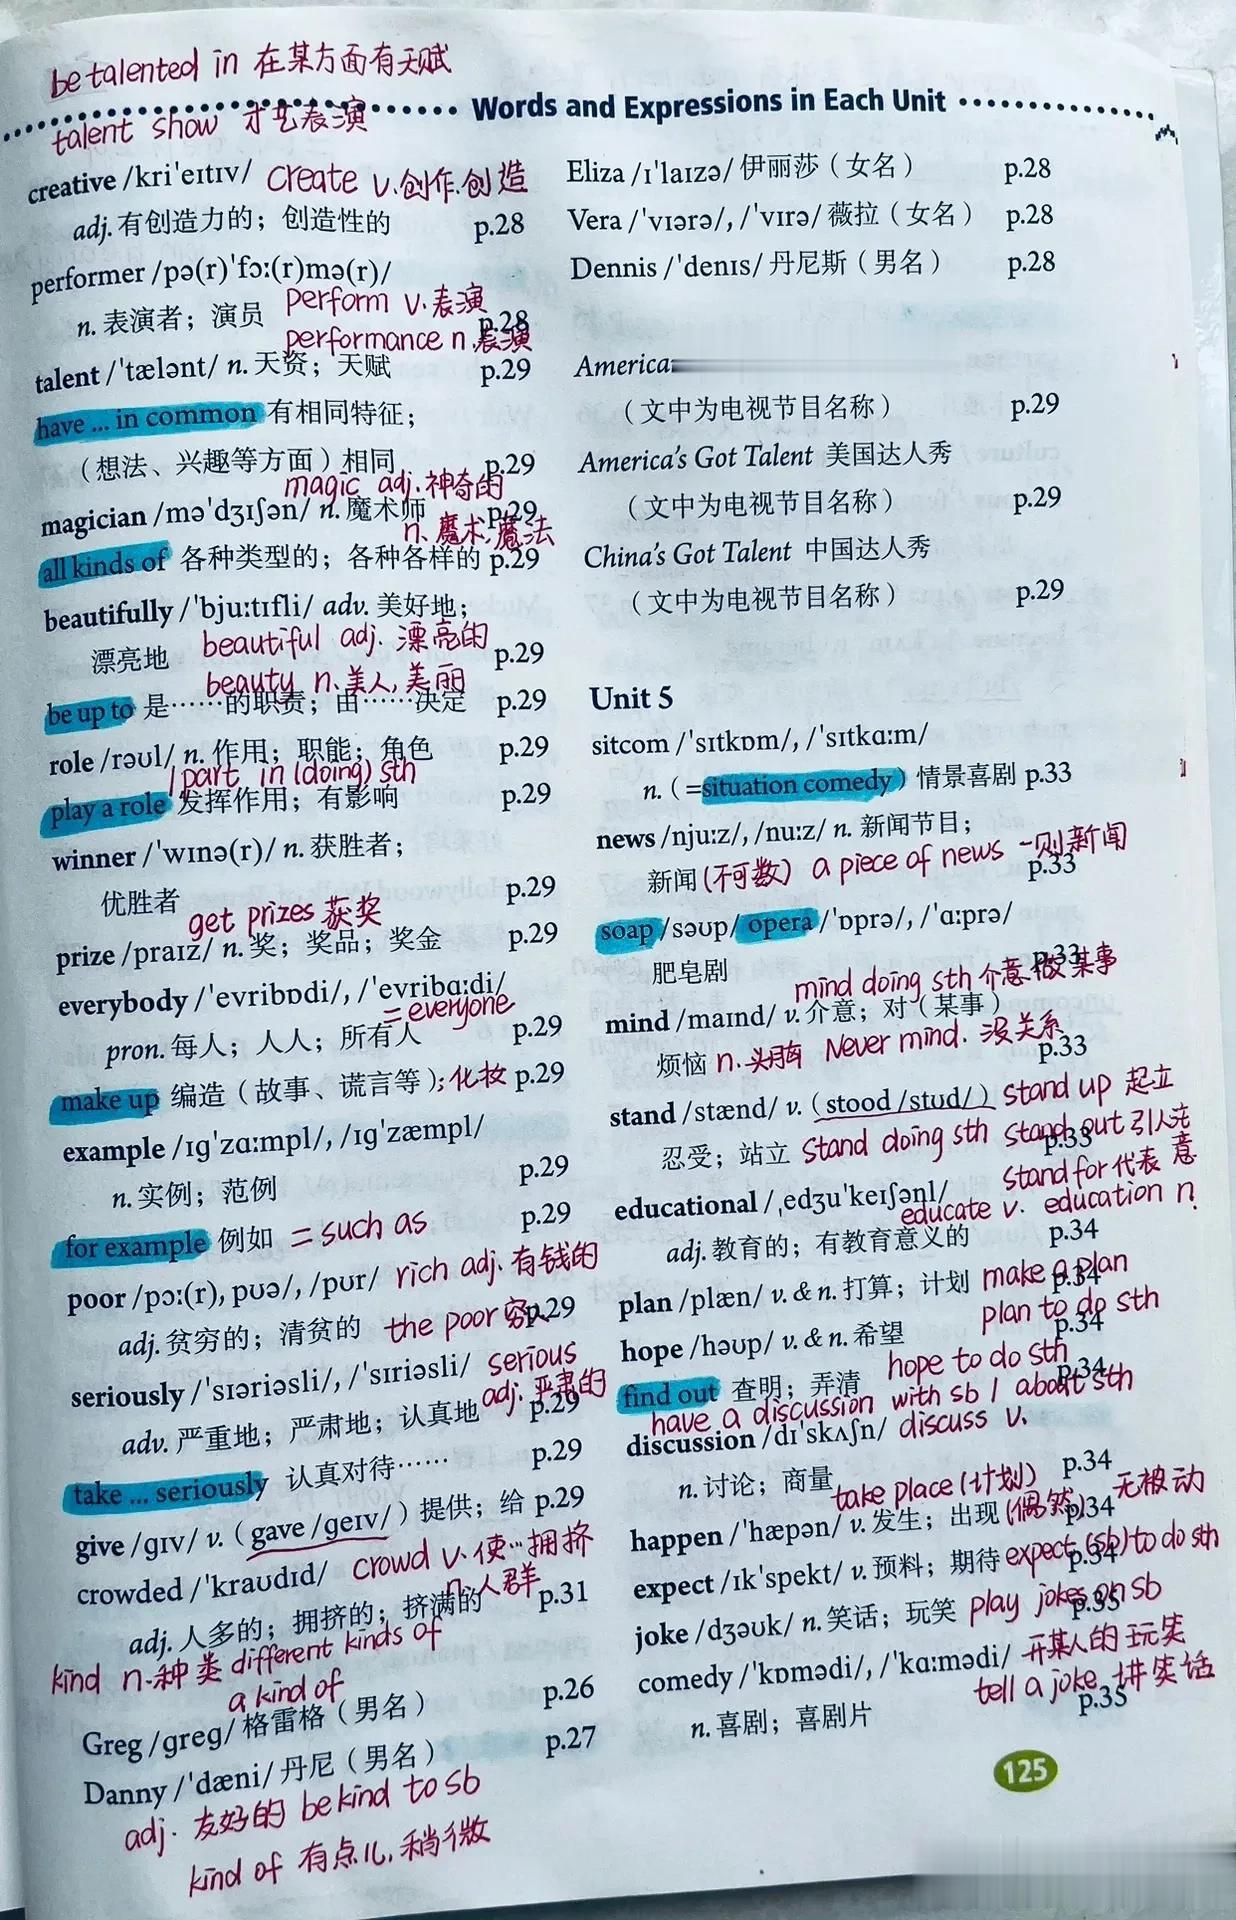 be talented in 在某方面有天赋
Words and Expressions in Each Unit
talent show 才艺表演
creative /kri'eɪtɪv/ create v.创作.创造
adj. 有创造力的；创造性的 p.28
performer /pə(r)'fɔː(r)mə(r)/
n. 表演者；演员 perform v.表演 p.28
performance n.表演
talent /'tælənt/ n. 天资；天赋 p.29
have ... in common 有相同特征；
（想法、兴趣等方面）相同 p.29
magic adj.神奇的
magician /mə'dʒɪʃən/ n. 魔术师 p.29
n.魔术,魔法
all kinds of 各种类型的；各种各样的 p.29
beautifully /'bjuːtɪfli/ adv. 美好地；
漂亮地 beautiful adj. 漂亮的 p.29
beauty n.美人,美丽
be up to 是……的职责；由……决定 p.29
role /rəʊl/ n. 作用；职能；角色 p.29
/part in (doing) sth
play a role 发挥作用；有影响 p.29
winner /'wɪnə(r)/ n. 获胜者；
优胜者 p.29
get prizes 获奖
prize /praɪz/ n. 奖；奖品；奖金 p.29
everybody /'evribɒdi/, /'evribɑːdi/
=everyone
pron. 每人；人人；所有人 p.29
make up 编造（故事、谎言等）;化妆 p.29
example /ɪɡ'zɑːmpl/, /ɪɡ'zæmpl/
n. 实例；范例 p.29
for example 例如 =such as p.29
poor /pɔː(r), pʊə/, /pʊr/ rich adj.有钱的
adj. 贫穷的；清贫的 the poor 穷人 p.29
seriously /'sɪəriəsli/, /'sɪriəsli/ serious
adj.严肃的
adv. 严重地；严肃地；认真地 p.29
take ... seriously 认真对待…… p.29
give /ɡɪv/ v. （gave /ɡeɪv/）提供；给 p.29
crowded /'kraʊdɪd/ crowd v.使…拥挤
n.人群
adj. 人多的；拥挤的；挤满的 p.31
kind n.种类 different kinds of
a kind of
Greg /ɡreɡ/ 格雷格（男名） p.26
Danny /'dæni/ 丹尼（男名） p.27
adj. 友好的 be kind to sb
kind of 有点儿,稍微
Eliza /ɪ'laɪzə/ 伊丽莎（女名） p.28
Vera /'vɪərə/, /'vɪrə/ 薇拉（女名） p.28
Dennis /'denɪs/ 丹尼斯（男名） p.28
America
（文中为电视节目名称） p.29
America's Got Talent 美国达人秀
（文中为电视节目名称） p.29
China's Got Talent 中国达人秀
（文中为电视节目名称） p.29
Unit 5
sitcom /'sɪtkɒm/, /'sɪtkɑːm/
n. （=situation comedy）情景喜剧 p.33
news /njuːz/, /nuːz/ n. 新闻节目；
新闻(不可数) a piece of news 一则新闻 p.33
soap /səʊp/ opera /'ɒprə/, /'ɑːprə/
肥皂剧 p.33
mind doing sth 介意做某事
mind /maɪnd/ v. 介意；对（某事）
烦恼 n.头脑 Never mind. 没关系 p.33
stand /stænd/ v. （stood /stʊd/） stand up 起立
忍受；站立 stand doing sth stand out 引人注意 p.33
stand for 代表
educational /ˌedʒu'keɪʃənl/
educate v. education n.
adj. 教育的；有教育意义的 p.34
plan /plæn/ v. & n. 打算；计划 make a plan p.34
plan to do sth
hope /həʊp/ v. & n. 希望 p.34
hope to do sth
find out 查明；弄清 p.34
have a discussion with sb / about sth
discussion /dɪ'skʌʃn/ discuss v.
n. 讨论；商量 p.34
take place (计划)
happen /'hæpən/ v. 发生；出现(偶然) 无被动 p.34
expect /ɪk'spekt/ v. 预料；期待 expect (sb) to do sth p.34
joke /dʒəʊk/ n. 笑话；玩笑 play jokes on sb p.35
comedy /'kɒmədi/, /'kɑːmədi/ 开某人的玩笑
tell a joke 讲笑话
n. 喜剧；喜剧片 p.35
125